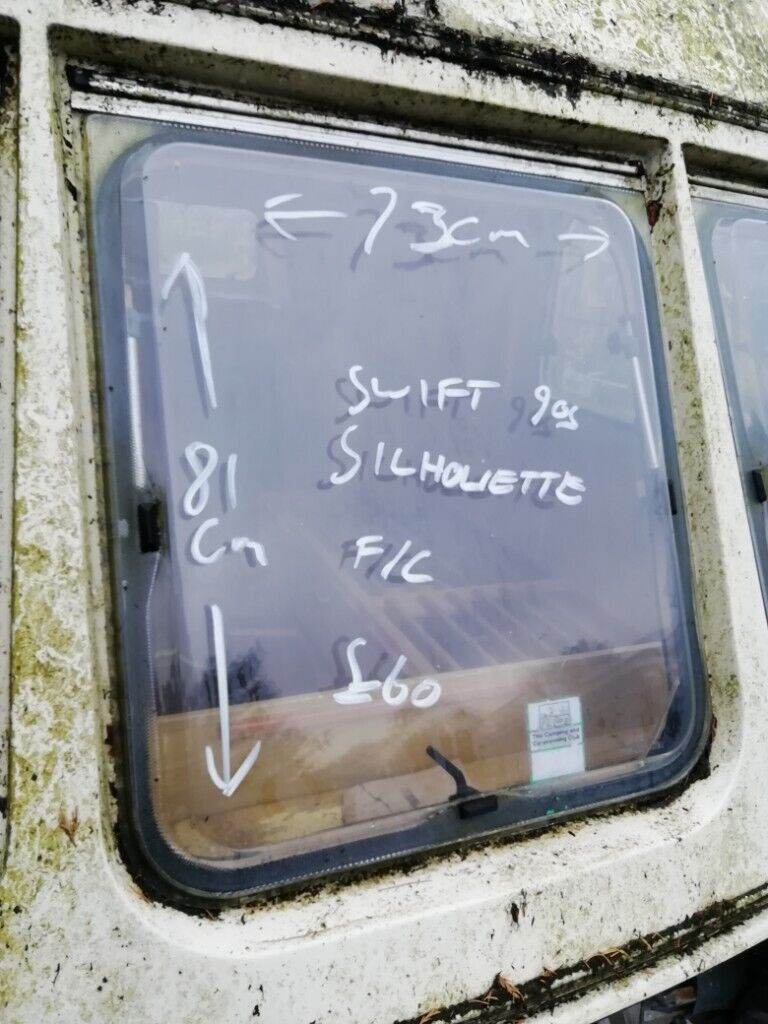 ← 73cm →
81
cm
SWIFT 90s
SILHOUETTE
F/C
£60
The Camping and
Caravanning Club